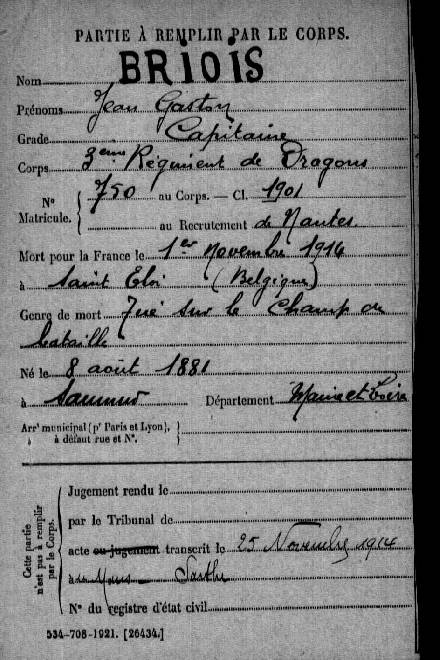 PARTIE À REMPLIR PAR LE CORPS.
Nom BRIOIS
Prénoms Jean Gaston
Grade Capitaine
Corps 3ème Régiment de Dragons
N° Matricule. { 750 au Corps. — Cl. 1901
au Recrutement de Nantes
Mort pour la France le 1er Novembre 1914
à Saint Eloi (Belgique)
Genre de mort Tué sur le Champ de
bataille
Né le 8 août 1881
à Saumur Département Maine et Loire
Arrt municipal (pr Paris et Lyon),
à défaut rue et N°.
Cette partie n'est pas à remplir par le Corps.
Jugement rendu le
par le Tribunal de
acte ou jugement transcrit le 25 Novembre 1914
à Le Mans — Sarthe
N° du registre d'état civil
534-708-1921. [26434.]